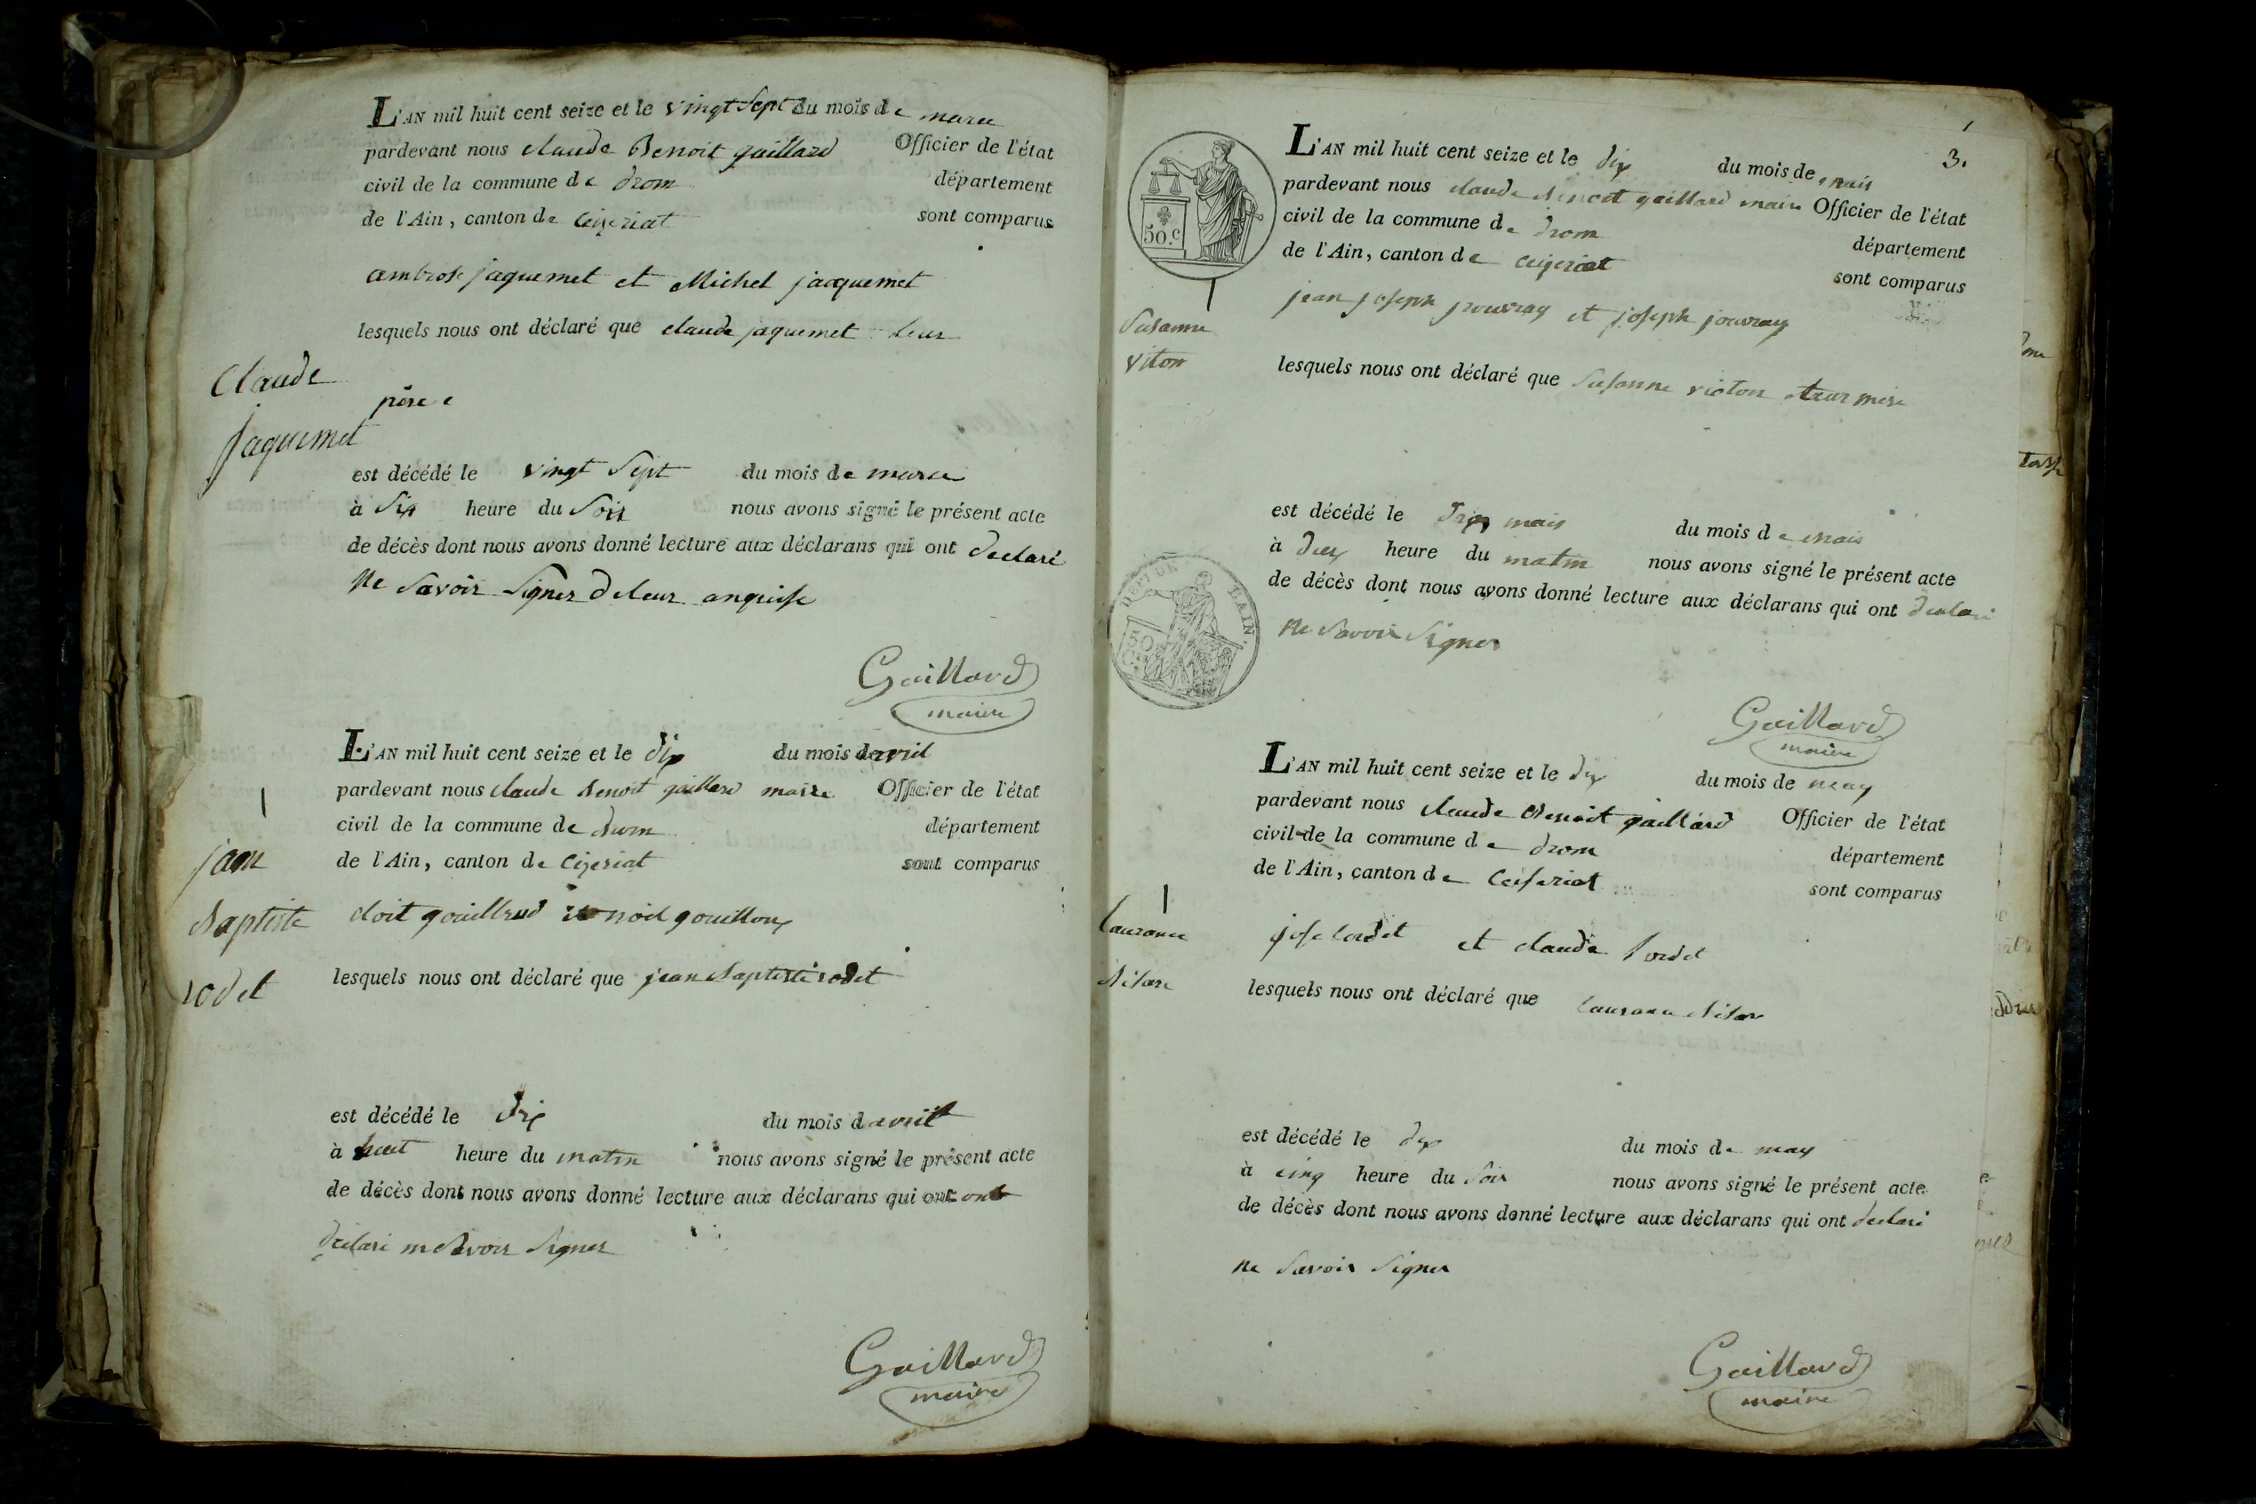 L'AN mil huit cent seize et le vingt sept du mois de mars
pardevant nous claude Benoit gaillard Officier de l'état
civil de la commune de drom département
de l'Ain, canton de Ceizeriat sont comparus
ambrose jaquemet et Michel jacquemet
lesquels nous ont déclaré que claude jaquemet leur
Claude
père
jaquemet
est décédé le vingt sept du mois de mars
à six heure du soir nous avons signé le présent acte
de décès dont nous avons donné lecture aux déclarans qui ont declaré
ne savoir signer de leur
Gaillard
maire
L'AN mil huit cent seize et le dix du mois davril
pardevant nous claude benoit gaillard maire Officier de l'état
civil de la commune de drom département
de l'Ain, canton de Cizeriat sont comparus
jean
baptiste
rodet
et noel gouilloux
lesquels nous ont déclaré que jean baptiste rodet
est décédé le dix du mois davril
à huit heure du matin nous avons signé le présent acte
de décès dont nous avons donné lecture aux déclarans qui ont ont
declaré ne savoir signer
Gaillard
maire
3.
50.c
L'AN mil huit cent seize et le dix du mois de mais
pardevant nous claude benoit gaillard maire Officier de l'état
civil de la commune de drom département
de l'Ain, canton de Ceizeriat sont comparus
jean joseph jouvray et joseph jouvray
Susanne
viton
lesquels nous ont déclaré que susanne victon leur mere
est décédé le dix mais du mois de mais
à deux heure du matin nous avons signé le présent acte
de décès dont nous avons donné lecture aux déclarans qui ont declaré
ne savoir signer
50
Gaillard
maire
L'AN mil huit cent seize et le dix du mois de may
pardevant nous claude Benoit gaillard Officier de l'état
civil de la commune de drom département
de l'Ain, canton de Ceiseriat sont comparus
laurance
et claude
lesquels nous ont déclaré que laurance
est décédé le dix du mois de may
à cinq heure du soir nous avons signé le présent acte
de décès dont nous avons donné lecture aux déclarans qui ont declaré
ne savoir signer
Gaillard
maire